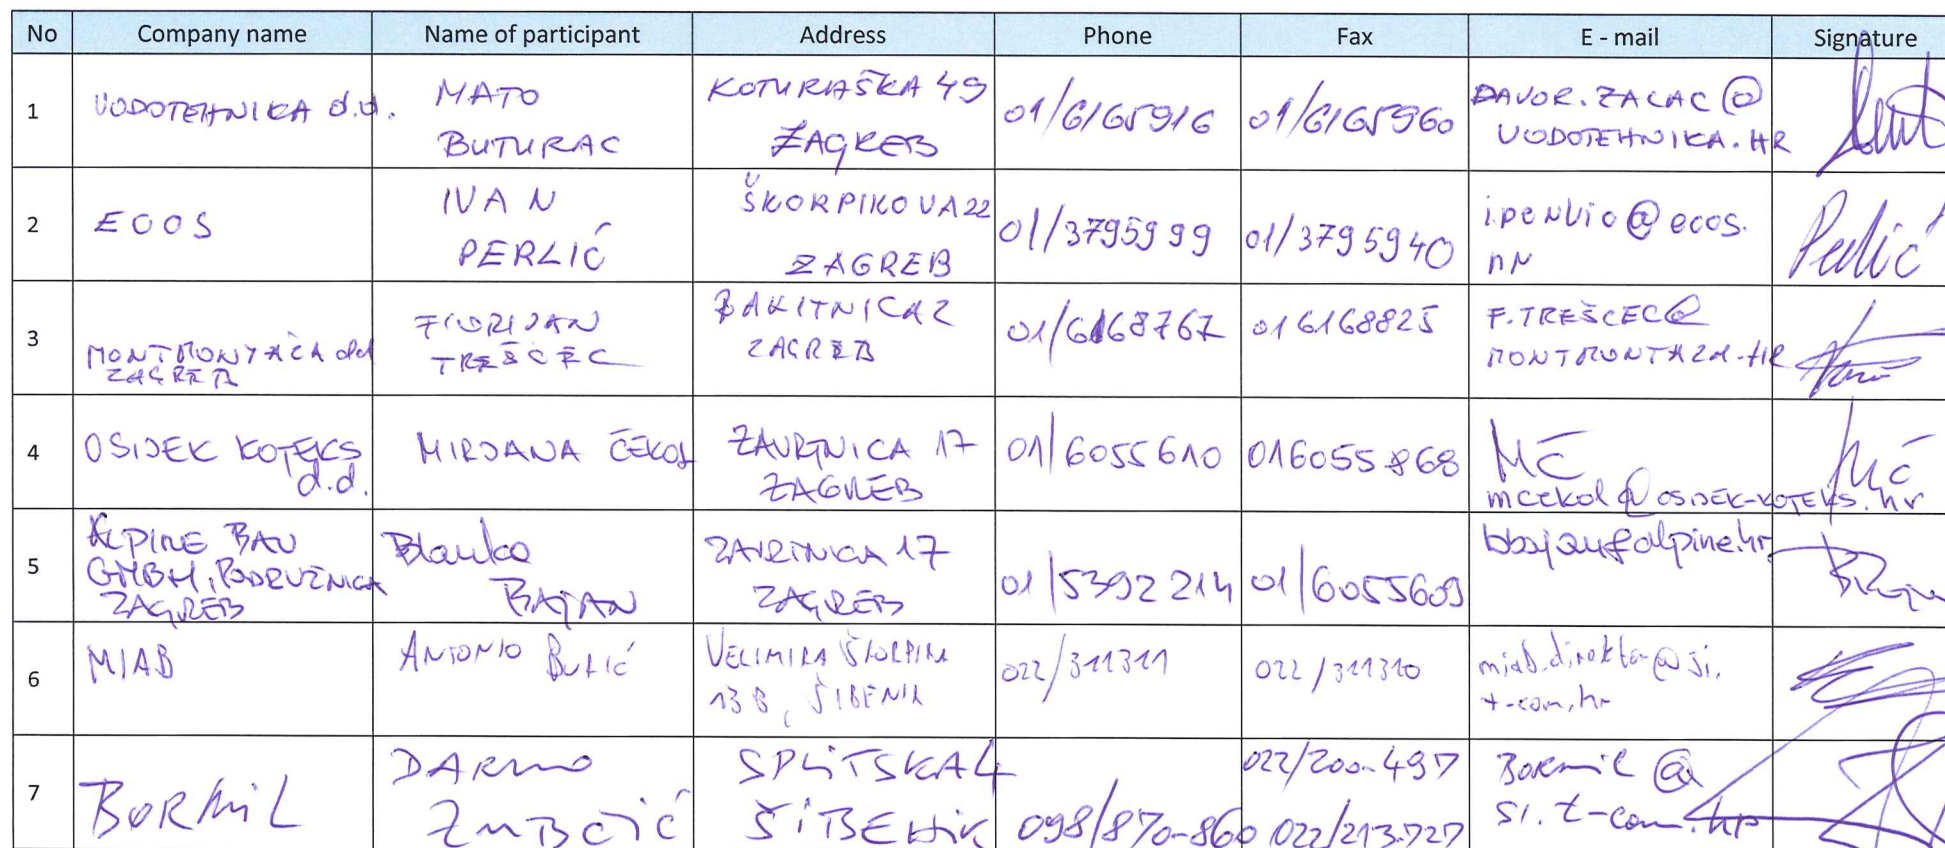 No Company name Name of participant Address Phone Fax E - mail Signature
1 VODOTEHNIKA d.d. MATO BUTURAC KOTURAŠKA 49 ZAGREB 01/6165916 01/6165960 DAVOR.ZACAC@
VODOTEHNIKA.HR
2 ECOS IVAN PERLIĆ ŠKORPIKOVA 22 ZAGREB 01/3795999 01/3795940 @ecos.
Perlić
3 ZAGREB FLORIJAN TREŠČEC ZAGREB 01/6168767 016168825 F.TREŠCEC@
4 OSIJEK KOTEKS d.d. MIRJANA ČEKOL ZAVRTNICA 17 ZAGREB 01/6055610 016055868 MČ
mcekol@OSIJEK-KOTEKS.hr
MČ
5 ALPINE BAU GMBH, PODRUŽNICA ZAGREB Blanka BAJAN ZAVRTNICA 17 ZAGREB 01/5392214 01/6055609 @alpine.hr
6 MIAB ANTONIO VELIMIRA ŠKORPIKA 13 B, ŠIBENIK 022/311311 022/311310 miab.direktor@si.
t-com.hr
7 BORMIL DARKO ZUBČIĆ SPLITSKA 4 ŠIBENIK 098/870-860 022/200-497
022/213-727 BORMIL@
SI.t-com.hr